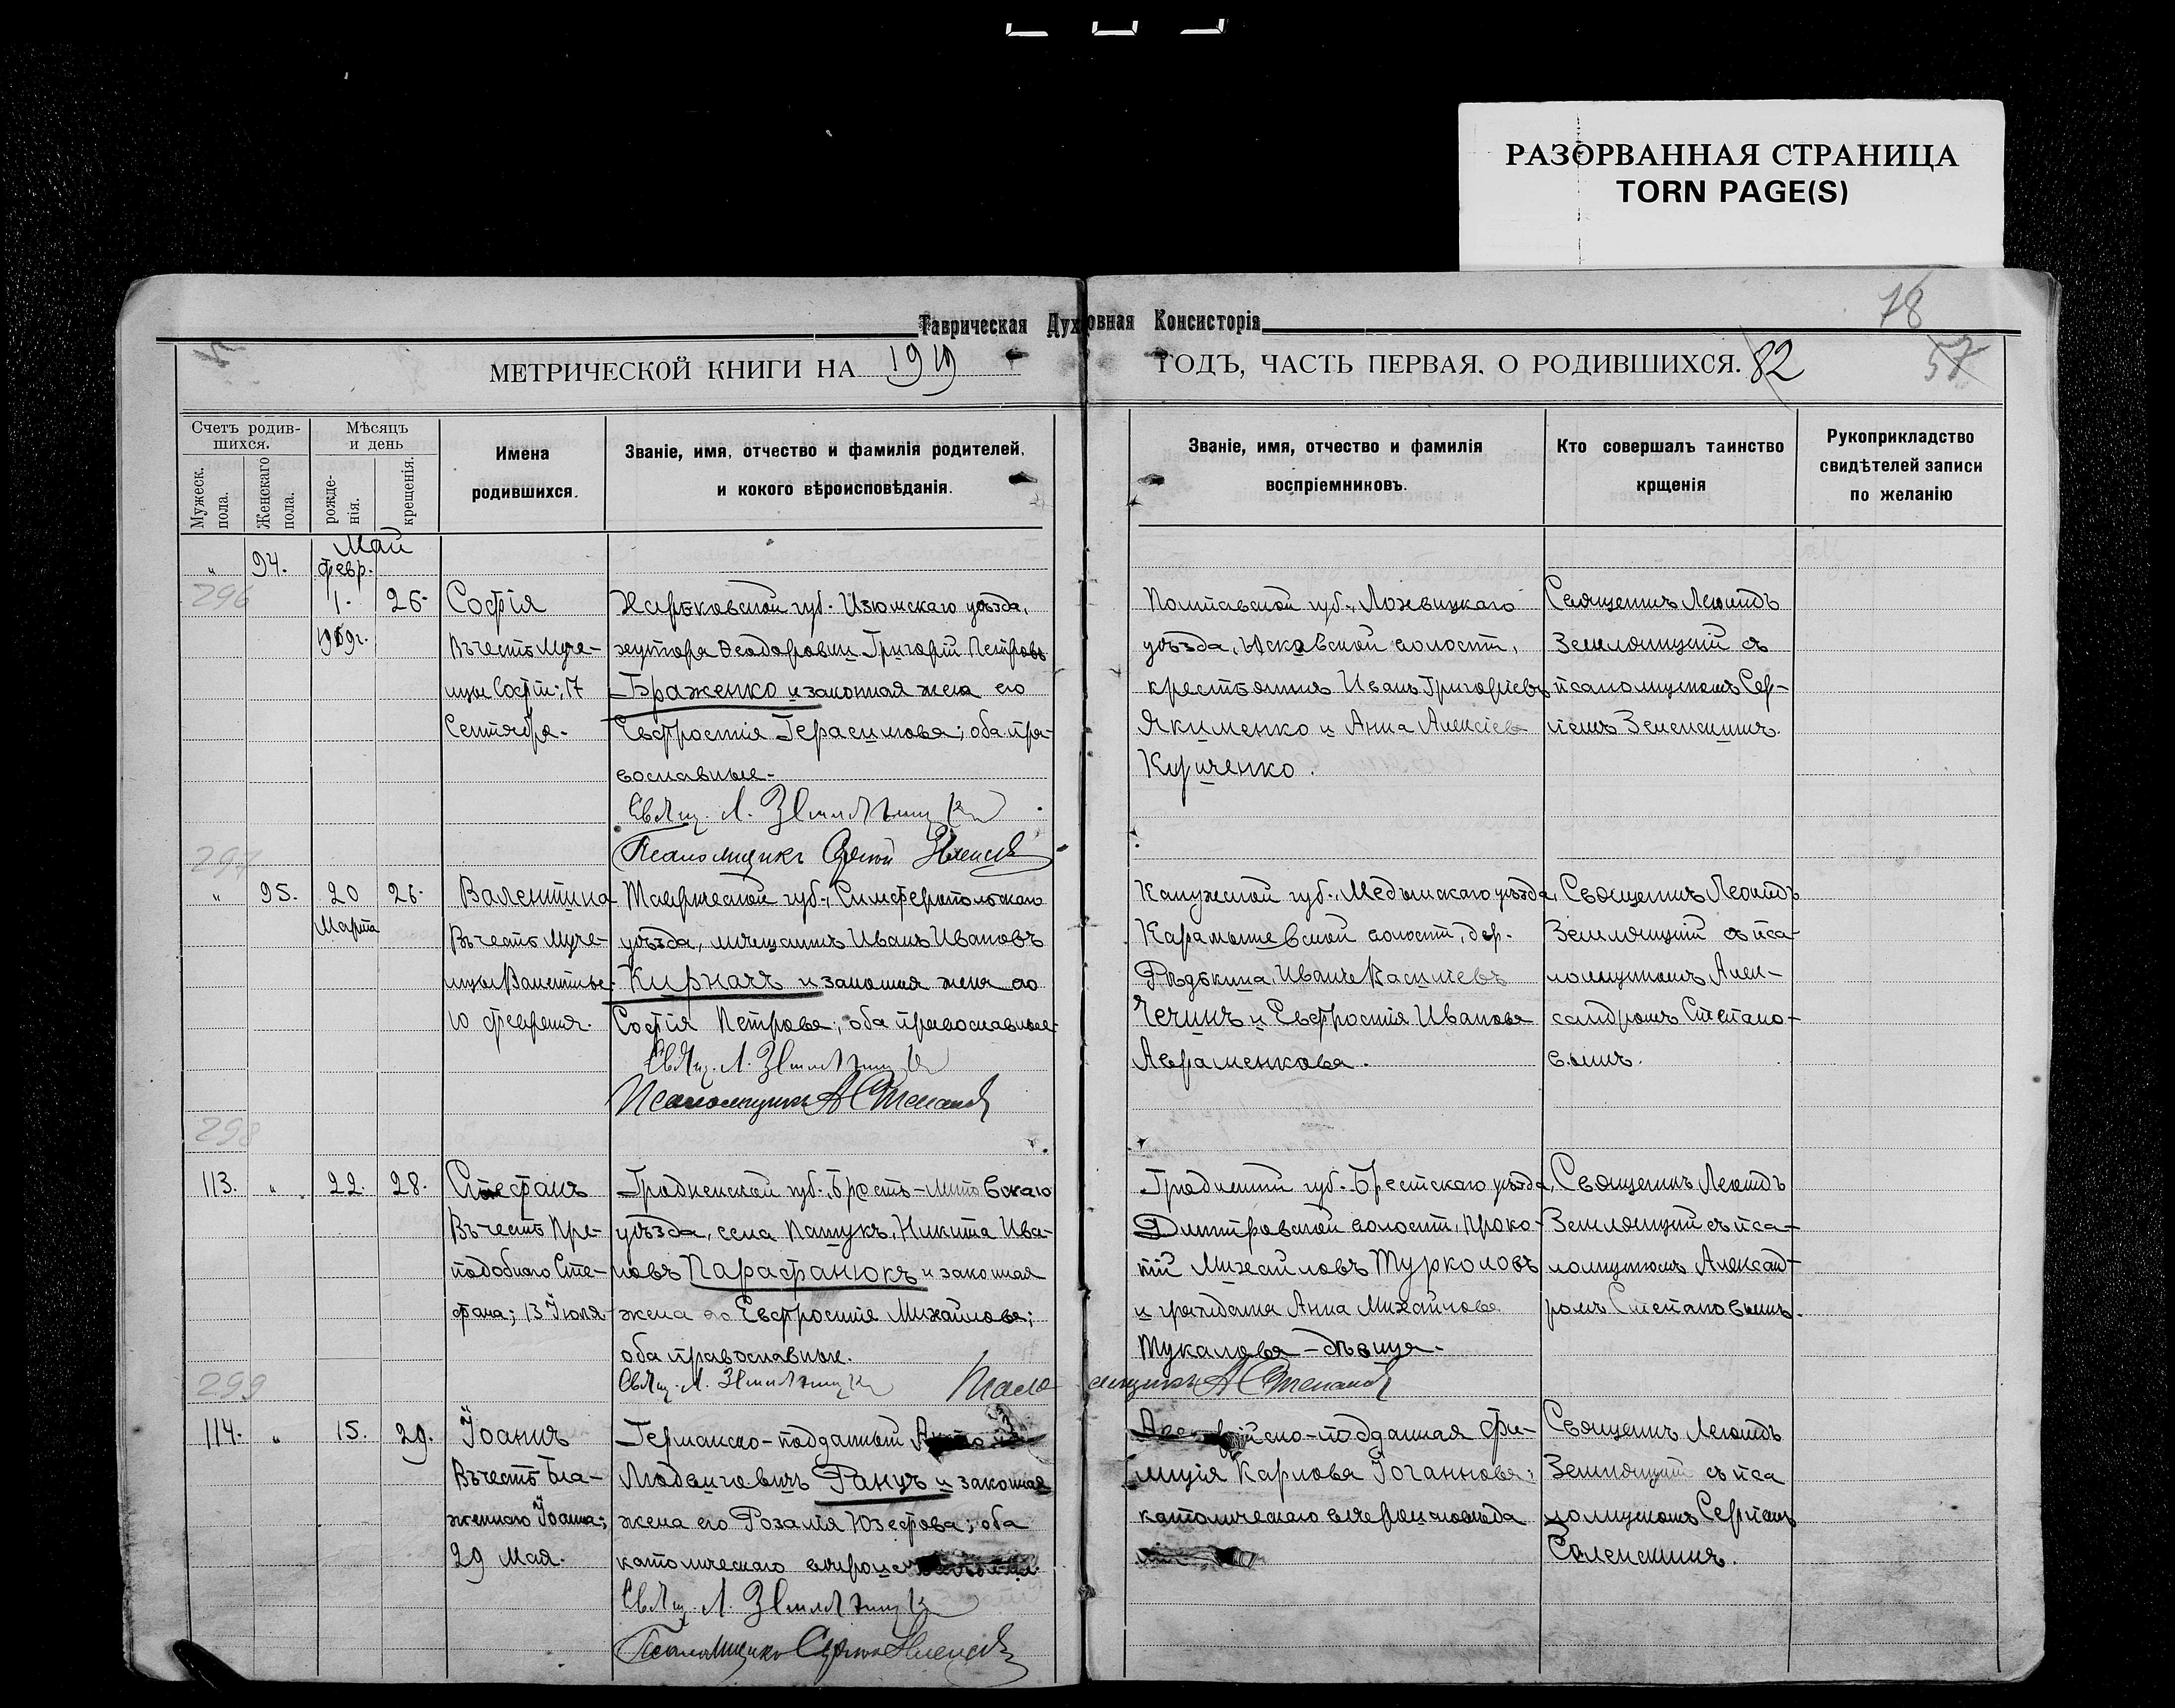 РАЗОРВАННАЯ СТРАНИЦА
TORN PAGE(S)
78
Таврическая Духовная Консисторія
МЕТРИЧЕСКОЙ КНИГИ НА 1919 ГОДЪ, ЧАСТЬ ПЕРВАЯ. О РОДИВШИХСЯ. 82
57
Счетъ родив-
шихся.
Мужеск.
пола.
Женскаго
пола.
Мѣсяцъ
и день
рожде-
нія.
крещенія.
Имена
родившихся.
Званіе, имя, отчество и фамилія родителей,
и кокого вѣроисповѣданія.
Званіе, имя, отчество и фамилія
воспріемниковъ.
Кто совершалъ таинство
крщенія
Рукоприкладство
свидѣтелей записи
по желанію
Май
„ 94. февр.
296
1. 26.
1919г.
Софія
Въ честь Муче-
ницы Софіи; 17
Сентября.
Харьковской губ. Изюмскаго уѣзда,
хутора Ѳеодоровки Григорій Петровъ
Браженко и законная жена его
Евфросинія Герасимова; оба пра-
вославные.
Свящ. Л.
Псаломщикъ Сергій
Полтавской губ., Лохвицкаго
уѣзда, Юсковской волости,
крестьянинъ Иванъ Григоріевъ
Якименко и Анна Алексіева
Куриченко.
Священникъ Леонидъ
Земляницкій съ
псаломщикомъ Сер-
гіемъ Зеленскимъ.
297
„ 95. 20 26.
Марта
Валентина
Въ честь Муче-
ницы Валентины
10 февраля.
Таврической губ., Симферопольскаго
уѣзда, мѣщанинъ Иванъ Ивановъ
Кирначъ и законная жена его
Софія Петрова; оба православные.
Свящ. Л.
Псаломщикъ А Степанов
Калужской губ., Медынскаго уѣзда,
Карамышевской волости, дер.
Радькина Иванъ Василіевъ
Чечинъ и Евфросинія Иванова
Авраменкова.
Священникъ Леонидъ
Земляницкій съ пса-
ломщикомъ Алек-
сандромъ Степано-
вымъ.
298
113. „ 22. 28.
Стефанъ
Въ честь Пре-
подобнаго Сте-
фана; 13 Іюля
Гродненской губ. Брестъ-Литовскаго
уѣзда, села Пащукъ, Никита Ива-
новъ Парафанюкъ и законная
жена его Евфросинія Михайлова;
оба православные.
Свящ. Л.
Псаломщикъ А Степанов
Гродненской губ. Брестскаго уѣзда,
Димитровской волости, Проко-
пій Михайловъ Турколовъ
и гражданка Анна Михайлова
Тукалова - дѣвица.
Священникъ Леонидъ
Земляницкій съ пса-
ломщикомъ Александ-
ромъ Степановымъ.
299
114. „ 15. 29.
Іоаннъ
Въ честь Бла-
женнаго Іоанна;
29 Мая.
Германско-подданный
Людвиговичъ Ранцъ и законная
жена его Розалія Юзефова; оба
католическаго
Свящ. Л.
Псаломщикъ
-подданная Фи-
лиція Карлова Іоганнова;
католическаго
Священникъ Леонидъ
Земляницкій съ пса
ломщикомъ Сергіемъ
Зеленскимъ.